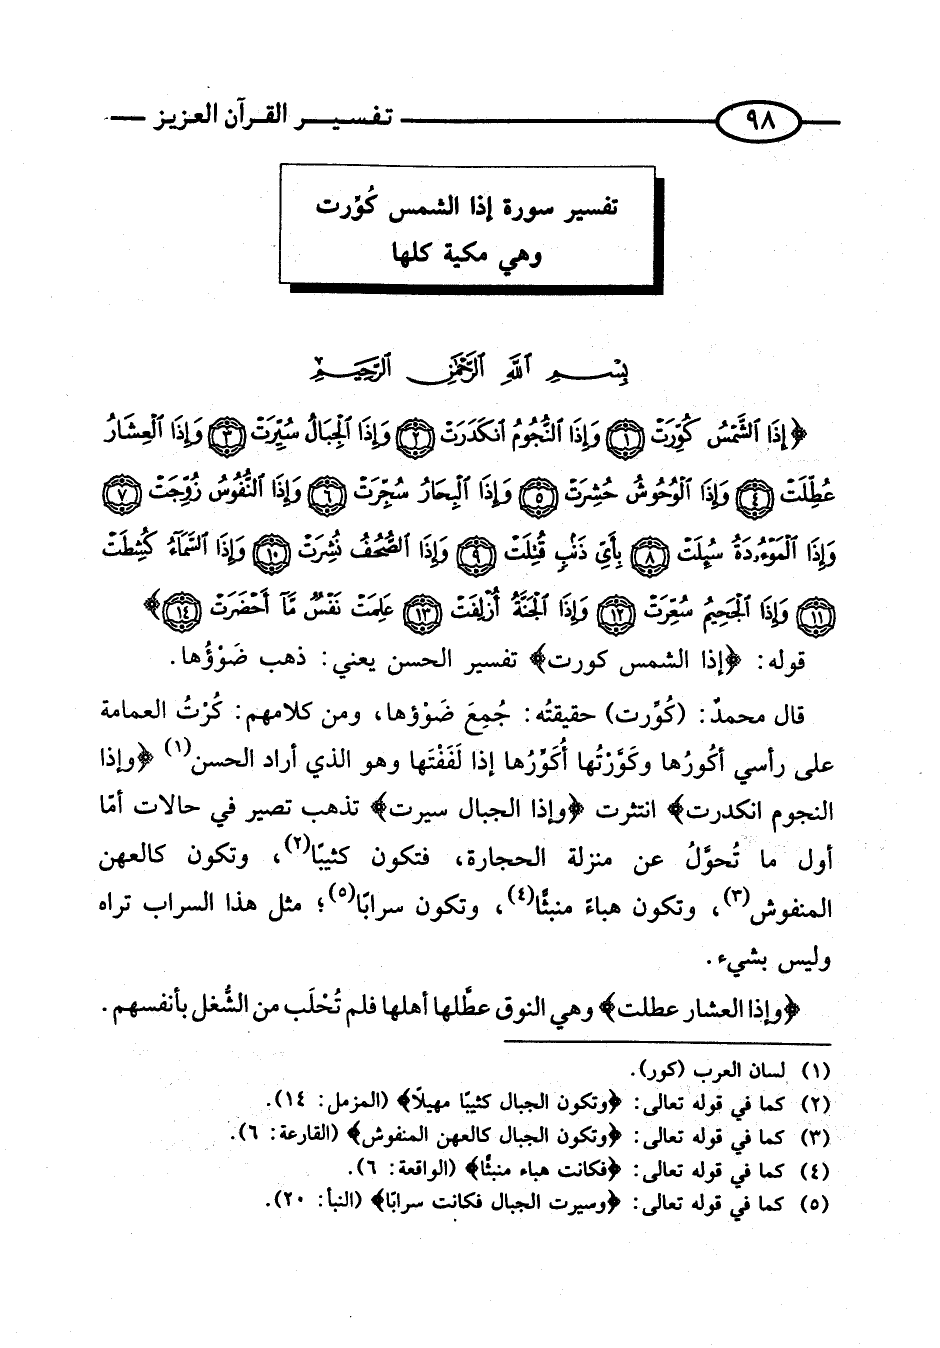 ٩٨ تفسير القرآن العزيز
تفسير سورة إذا الشمس كُوِّرت
وهي مكية كلها
بِسْمِ اللَّهِ الرَّحْمَٰنِ الرَّحِيمِ
﴿إِذَا الشَّمْسُ كُوِّرَتْ ﴿١﴾ وَإِذَا النُّجُومُ انكَدَرَتْ ﴿٢﴾ وَإِذَا الْجِبَالُ سُيِّرَتْ ﴿٣﴾ وَإِذَا الْعِشَارُ
عُطِّلَتْ ﴿٤﴾ وَإِذَا الْوُحُوشُ حُشِرَتْ ﴿٥﴾ وَإِذَا الْبِحَارُ سُجِّرَتْ ﴿٦﴾ وَإِذَا النُّفُوسُ زُوِّجَتْ ﴿٧﴾
وَإِذَا الْمَوْءُدَةُ سُئِلَتْ ﴿٨﴾ بِأَيِّ ذَنْبٍ قُتِلَتْ ﴿٩﴾ وَإِذَا الصُّحُفُ نُشِرَتْ ﴿١٠﴾ وَإِذَا السَّمَآءُ كُشِطَتْ
﴿١١﴾ وَإِذَا الْجَحِيمُ سُعِّرَتْ ﴿١٢﴾ وَإِذَا الْجَنَّةُ أُزْلِفَتْ ﴿١٣﴾ عَلِمَتْ نَفْسٌ مَّآ أَحْضَرَتْ ﴿١٤﴾﴾
قوله: ﴿إذا الشمس كورت﴾ تفسير الحسن يعني: ذهب ضَوْؤُها.
قال محمدٌ: (كُوِّرت) حقيقتُه: جُمِعَ ضَوْؤها، ومن كلامهم: كُرْتُ العمامة
على رأسي أكُورُها وكَوَّرْتُها أُكَوِّرُها إذا لَفَفْتَها وهو الذي أراد الحسن(١) ﴿وإذا
النجوم انكدرت﴾ انتثرت ﴿وإذا الجبال سيرت﴾ تذهب تصير في حالات أمّا
أول ما تُحوَّلُ عن منزلة الحجارة، فتكون كثيبًا(٢)، وتكون كالعهن
المنفوش(٣)، وتكون هباءً منبثًّا(٤)، وتكون سرابًا(٥)؛ مثل هذا السراب تراه
وليس بشيء.
﴿وإذا العشار عطلت﴾ وهي النوق عطَّلها أهلها فلم تُحْلَب من الشُّغل بأنفسهم.
(١) لسان العرب (كور).
(٢) كما في قوله تعالى: ﴿وتكون الجبال كثيبًا مهيلًا﴾ (المزمل: ١٤).
(٣) كما في قوله تعالى: ﴿وتكون الجبال كالعهن المنفوش﴾ (القارعة: ٦).
(٤) كما في قوله تعالى: ﴿فكانت هباء منبثًّا﴾ (الواقعة: ٦).
(٥) كما في قوله تعالى: ﴿وسيرت الجبال فكانت سرابًا﴾ (النبأ: ٢٠).